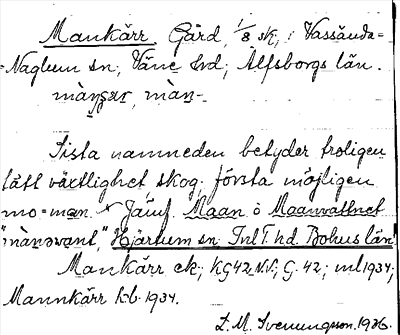 Mankärr Gård, 1/8 sk, i Vassända-
-Naglum sn; Väne hd; Älfsborgs län.
màn-
Sista namneden betyder troligen
tätt växtlighet skog; första möjligen
mo = man. Jämf. Maan o Maanvattnet
Hjärtum sn Inl T. hd. Bohus län
Mankärr ek; KG42.N.V.; G. 42; ml 1934;
Mannkärr kb. 1934.
L. M. Svenungson. 1936.